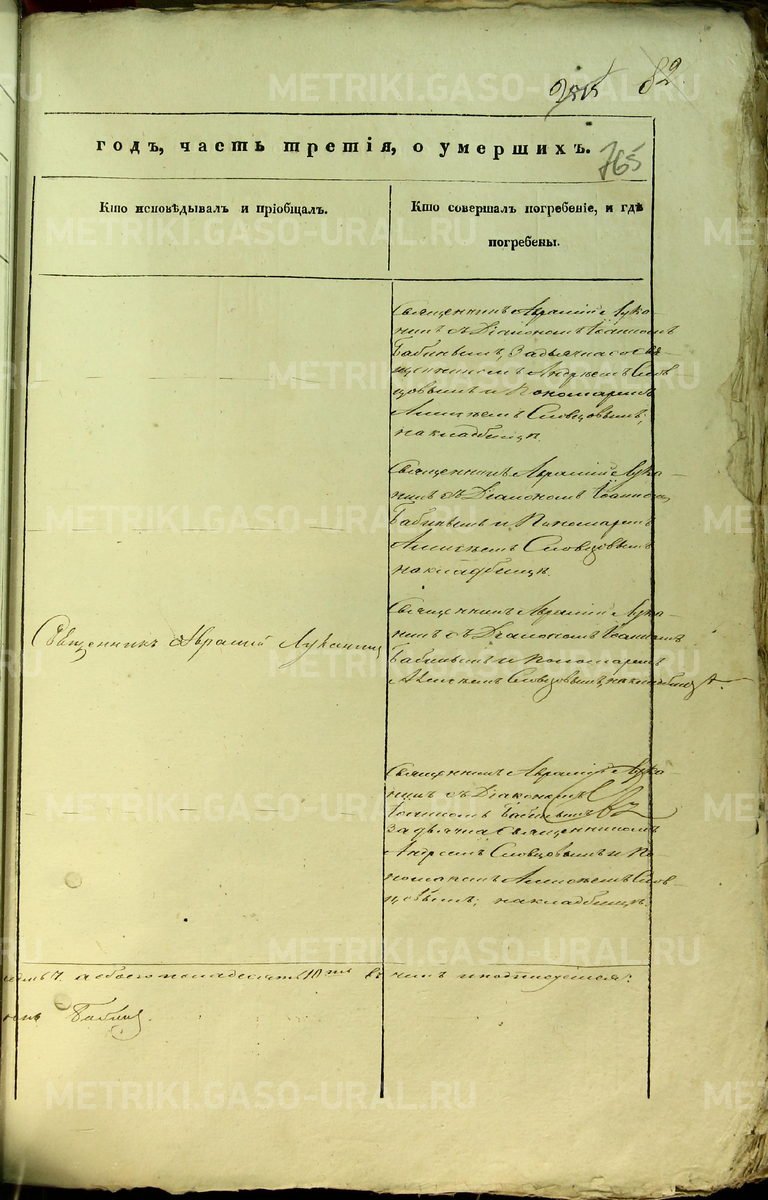 82
765
годъ, часть третія, о умершихъ.
Кто исповѣдывалъ и пріобщалъ.
Кто совершалъ погребеніе, и гдѣ
погребены.
Священникъ Аврамій Лука-
нинъ съ Діакономъ Іоанномъ
Бабинымъ, За дьячка Свя-
щенникомъ Андреемъ Слов
цовымъ и Пономаремъ
Алексѣемъ Словцовымъ;
на кладбищѣ.
Священникъ Аврамій Лука-
нинъ съ Діакономъ Іоанномъ
Бабинымъ и Пономаремъ
Алексѣемъ Словцовымъ
на кладбищѣ.
Священникъ Аврамій Лука-
нинъ съ Діакономъ Іоанномъ
Бабинымъ и Пономаремъ
Алексѣемъ Словцовымъ, на кладбищѣ.
Священникъ Аврамій Луканинъ
Священникъ Аврамій Лука-
нинъ съ Діакономъ
Іоанномъ Бабинымъ
За дьячка Священникомъ
Андреемъ Словцовымъ и По-
номаремъ Алексѣемъ Слов-
цовымъ; на кладбищѣ.
7. а обоего пола десять 10ть въ чемъ и подписуемся:
Бабинъ.
METRIKI.GASO-URAL.RU